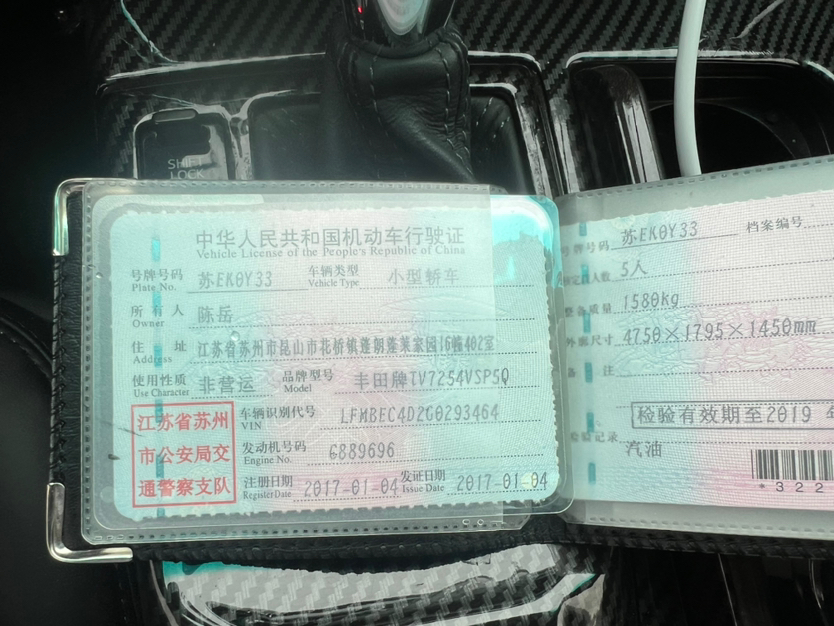 SHIFT
LOCK
中华人民共和国机动车行驶证
Vehicle License of the People's Republic of China
号牌号码 苏EK0Y33 车辆类型 小型轿车
Plate No. Vehicle Type
所有人 陈岳
Owner
住址 江苏省苏州市昆山市花桥镇蓬朗蓬莱家园16幢402室
Address
使用性质 非营运 品牌型号 丰田牌TV7254VSP5Q
Use Character Model
江苏省苏州
市公安局交
通警察支队
车辆识别代号 LFMBEC4D2G0293464
VIN
发动机号码 G889696
Engine No.
注册日期 2017-01-04 发证日期 2017-01-04
Register Date Issue Date
号牌号码 苏EK0Y33 档案编号
人数 5人
整备质量 1580kg
外廓尺寸 4750×1795×1450mm
备注
检验有效期至2019 年
检验记录
汽油
*322